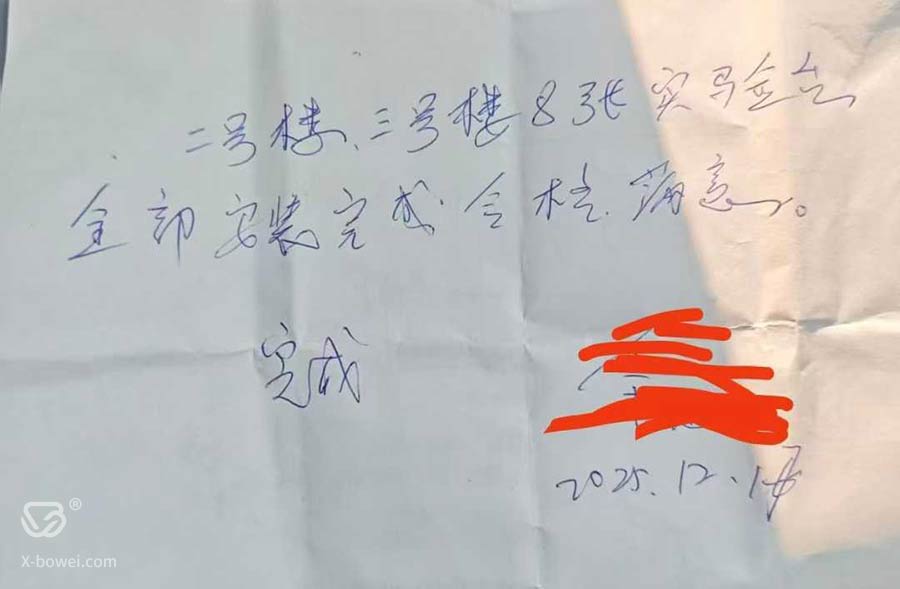 二号楼、三号楼8张实验台
全部安装完成 合格 满意。
完成
2025.12.1
X-bowei.com
®